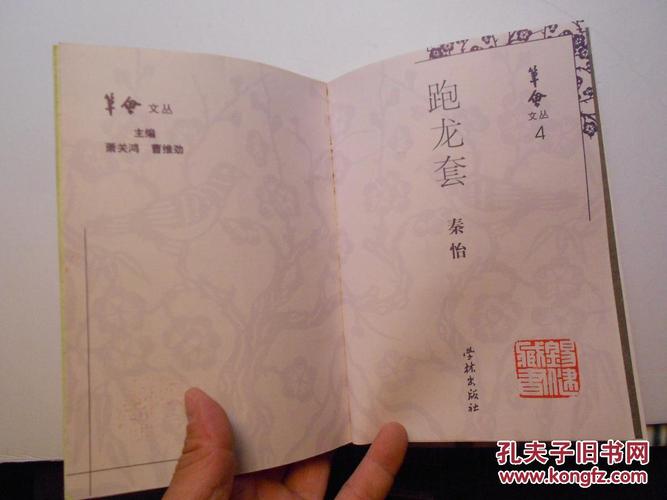 笔会 文丛
主编
萧关鸿 曹维劲
笔会
文丛
4
跑龙套
秦怡
学林出版社
藏书
孔夫子旧书网
www.kongfz.com